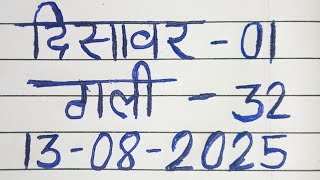 दिसावर - 01
गली - 32
13-08-2025